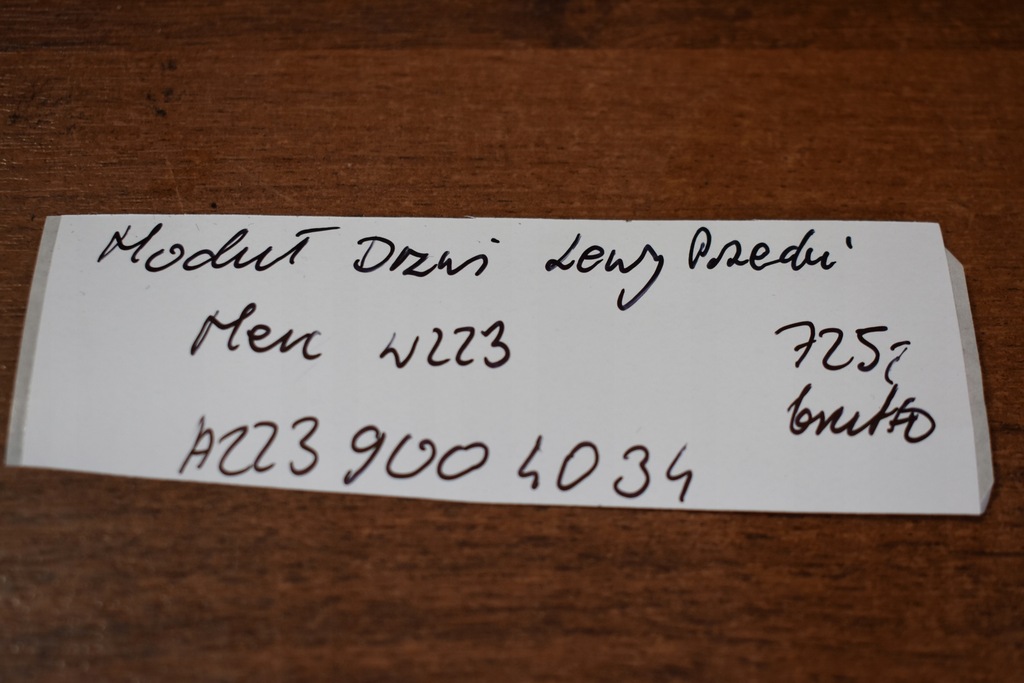 Moduł Drzwi Lewy Przedni
Merc W223 725,-
brutto
A223 900 4034